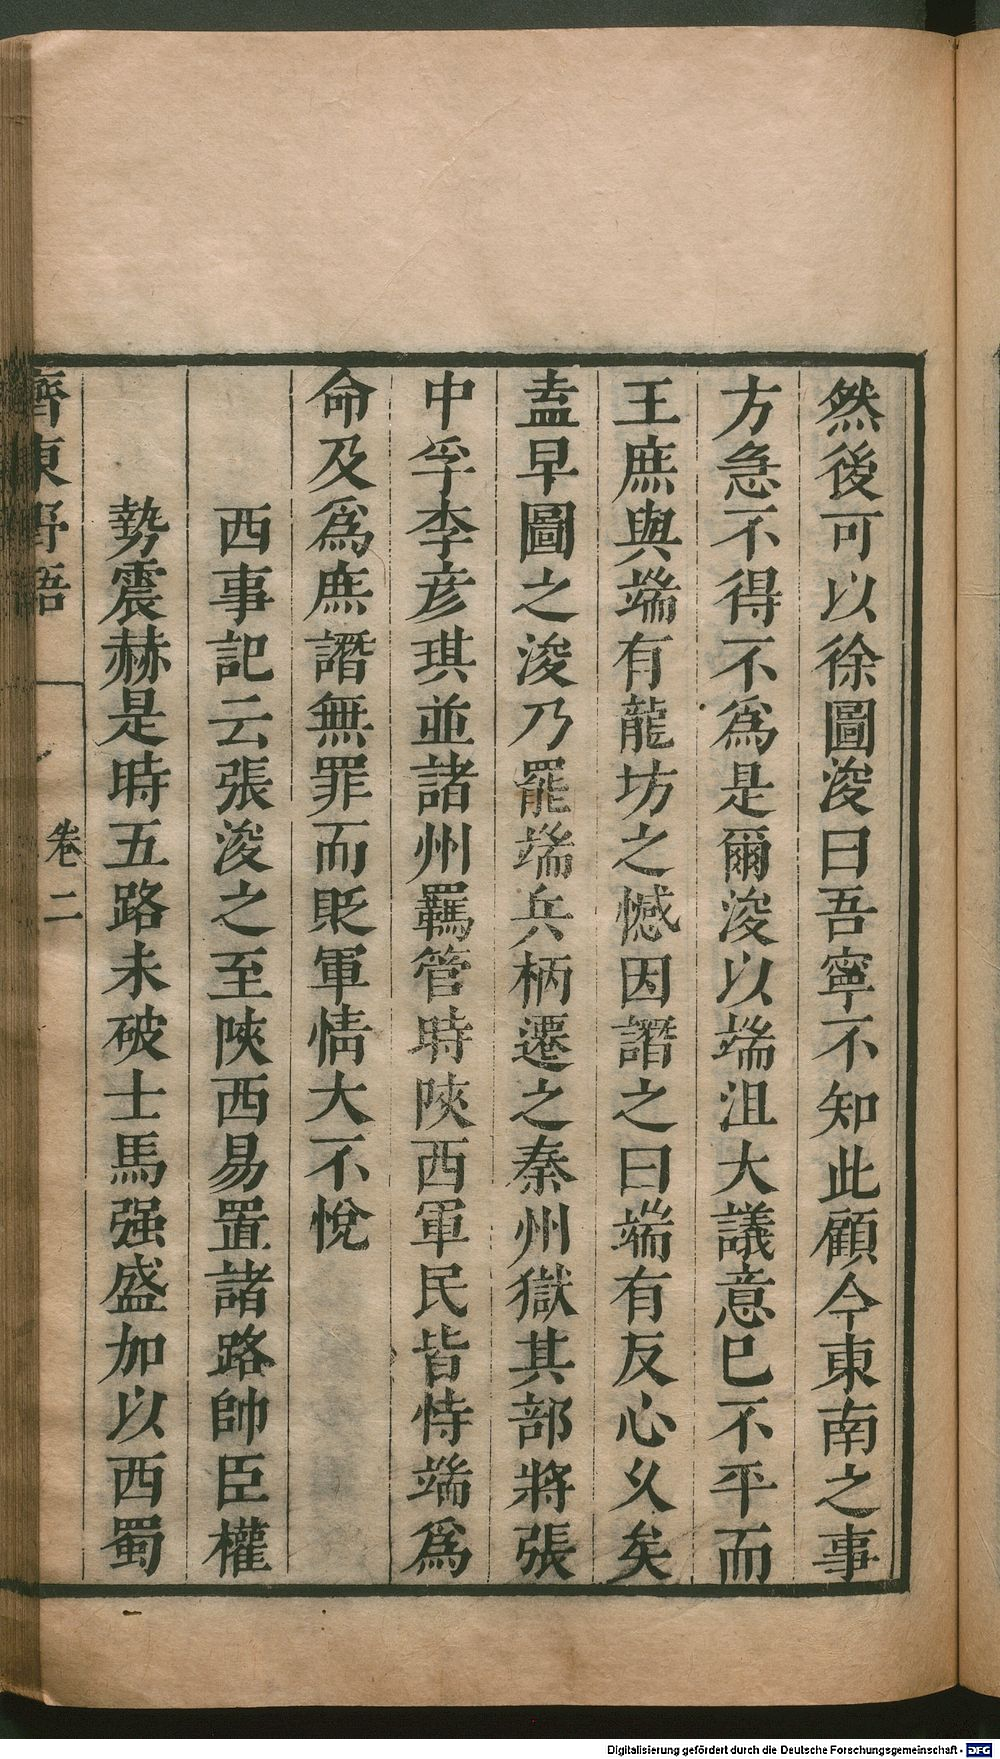 然後可以徐圖浚曰吾寧不知此顧今東南之事
方急不得不爲是爾浚以端沮大議意已不平而
王庶與端有龍坊之憾因譖之曰端有反心乆矣
盍早圖之浚乃罷端兵柄遷之秦州獄其部將張
中孚李彦琪並諸州羈管時陜西軍民皆恃端爲
命及爲庶譖無罪而貶軍情大不悅
西事記云張浚之至陜西易置諸路帥臣權
勢震赫是時五路未破士馬强盛加以西蜀
齊東野語
卷二
Digitalisierung gefördert durch die Deutsche Forschungsgemeinschaft - DFG